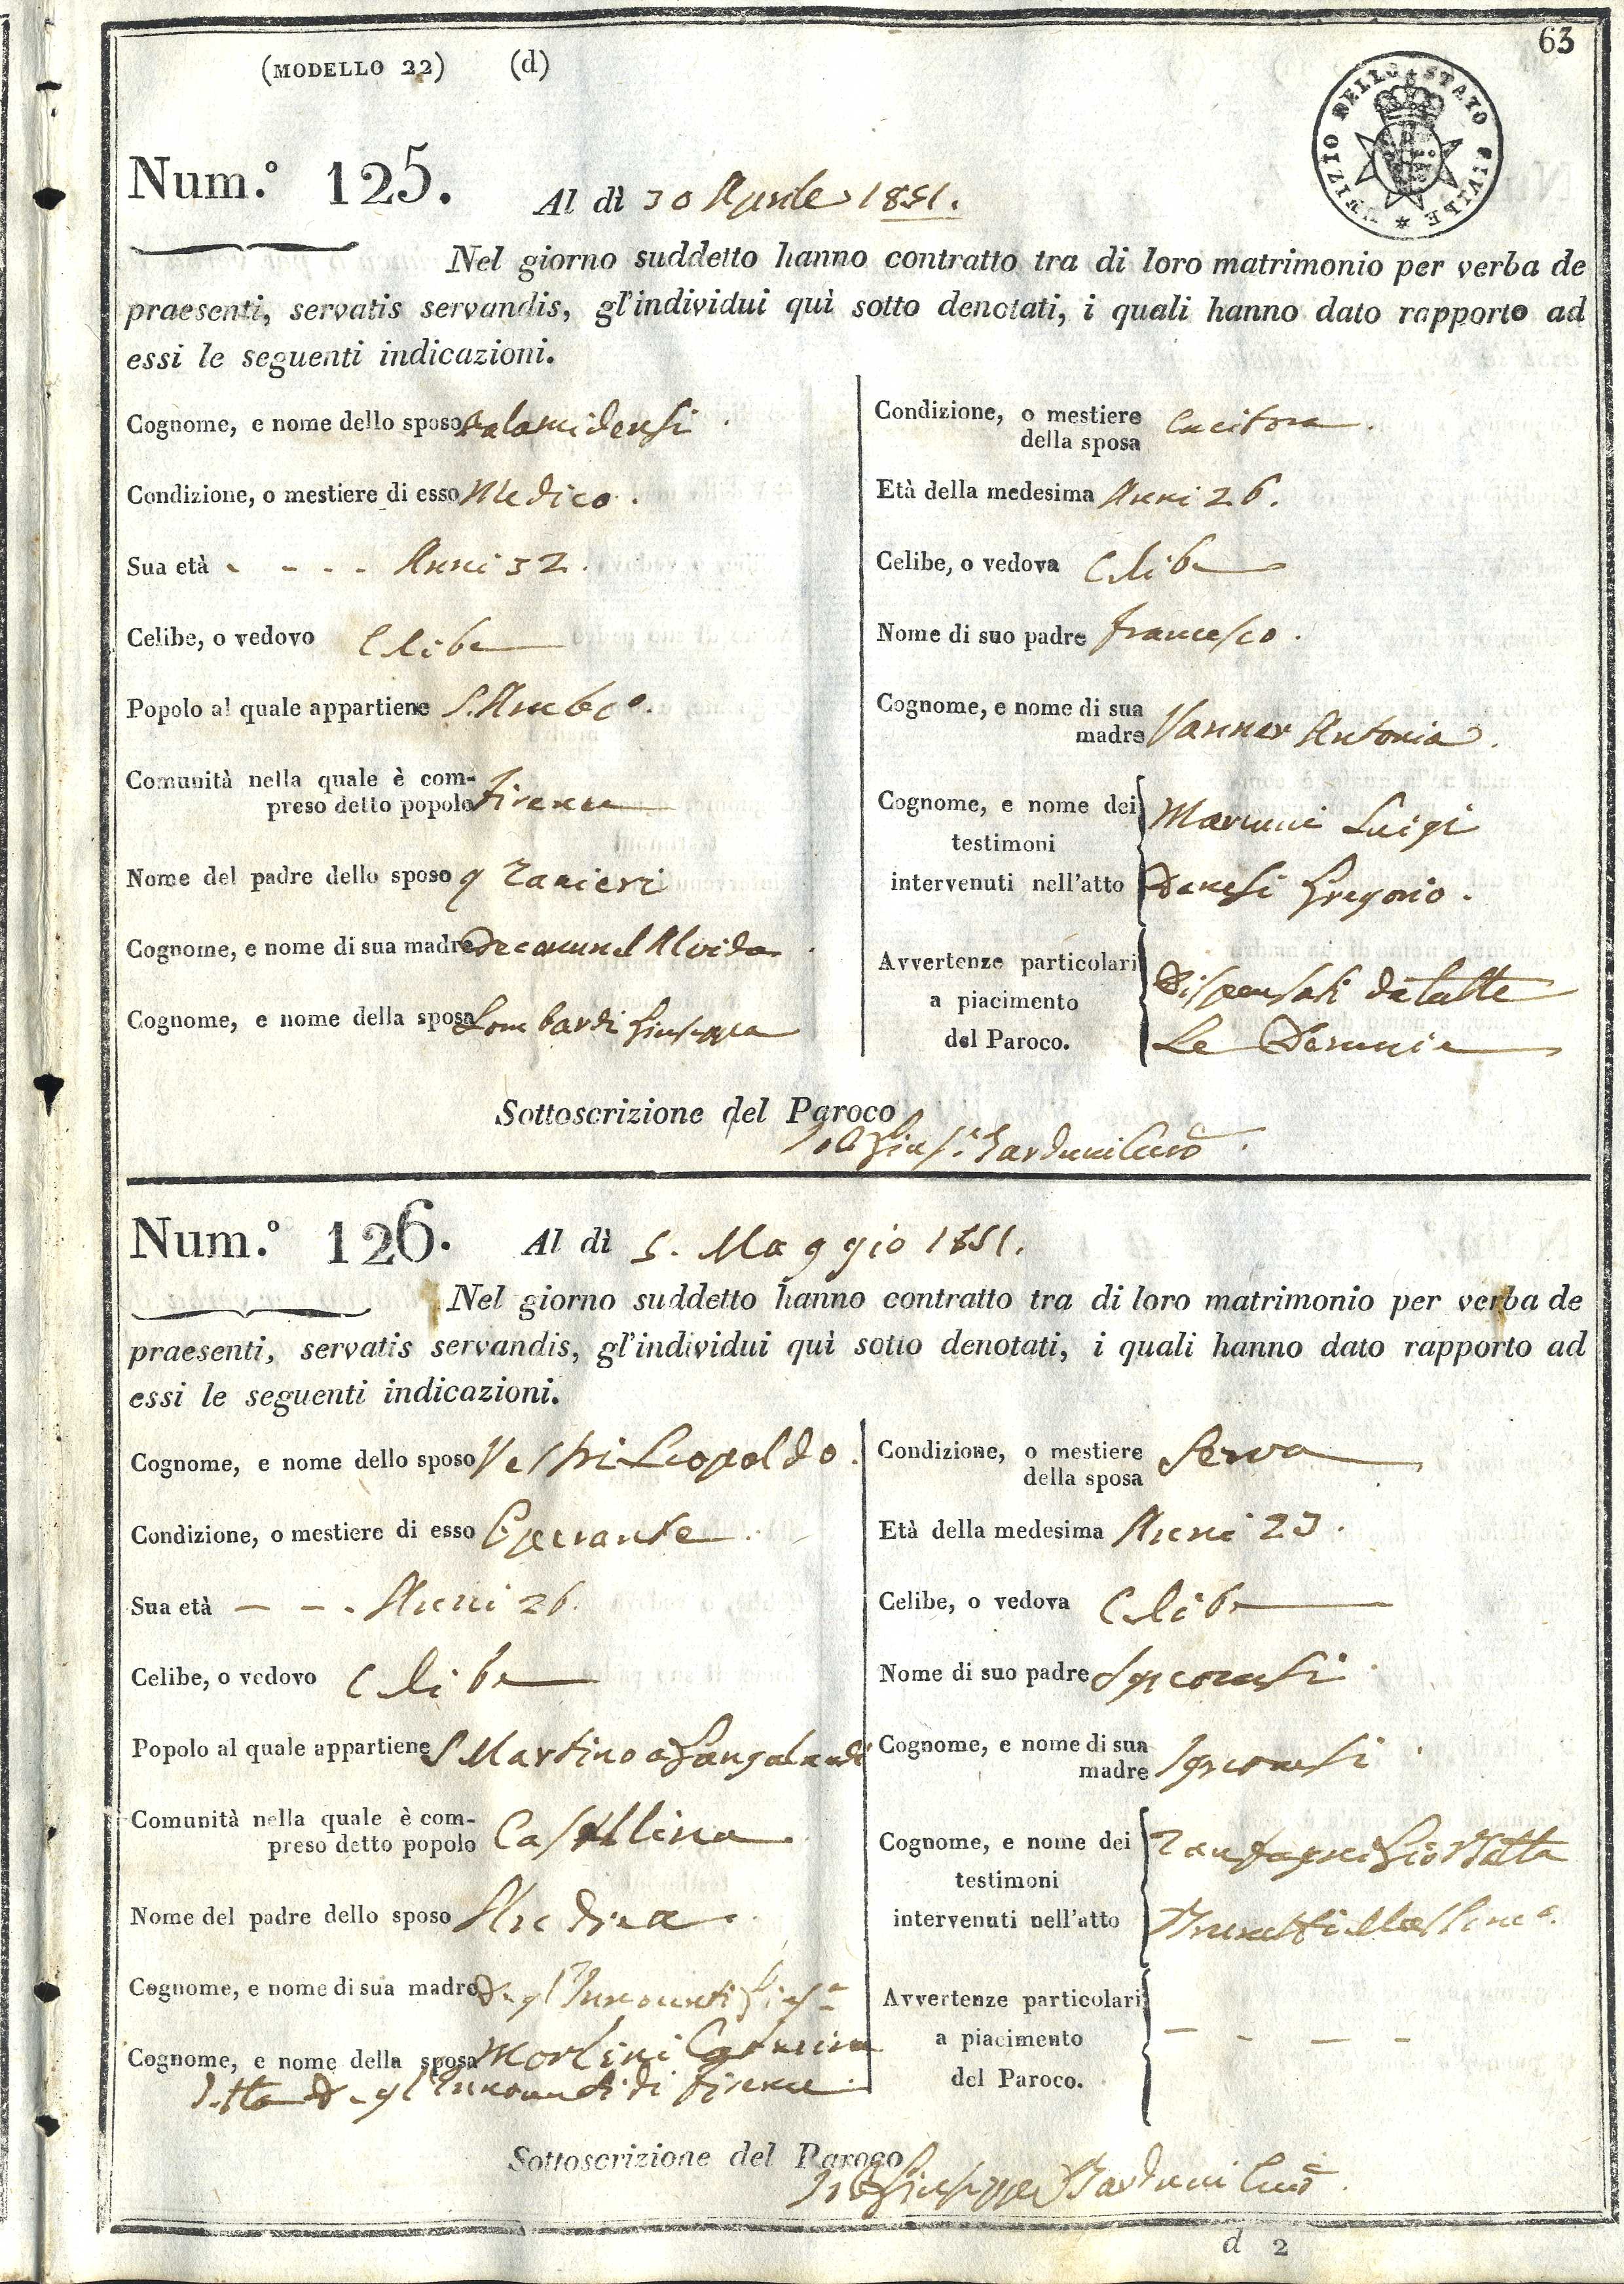 63
(MODELLO 22) (d)
UFIZIO DELLO STATO CIVILE
Num.º 125. Al dì 30 Aprile 1851.
Nel giorno suddetto hanno contratto tra di loro matrimonio per verba de
praesenti, servatis servandis, gl'individui quì sotto denotati, i quali hanno dato rapporto ad
essi le seguenti indicazioni.
Cognome, e nome dello sposo
Condizione, o mestiere di esso Medico.
Sua età - - - - Anni 32.
Celibe, o vedovo Celibe
Popolo al quale appartiene S. Ambo.
Comunità nella quale è com-
preso detto popolo Firenze
Nome del padre dello sposo q Ranieri
Cognome, e nome di sua madre
Cognome, e nome della sposa Lombardi Giuseppa
Condizione, o mestiere
della sposa Cucitora.
Età della medesima Anni 26.
Celibe, o vedova Celibe
Nome di suo padre Francesco.
Cognome, e nome di sua
madre Vanner Antonia.
Cognome, e nome dei
testimoni
intervenuti nell'atto
Luigi
Danesi Gregorio.
Avvertenze particolari
a piacimento
del Paroco.
Dispensati da tutte
Le Denunzie
Sottoscrizione del Paroco
Num.º 126. Al dì 5. Maggio 1851.
Nel giorno suddetto hanno contratto tra di loro matrimonio per verba de
praesenti, servatis servandis, gl'individui quì sotto denotati, i quali hanno dato rapporto ad
essi le seguenti indicazioni.
Cognome, e nome dello sposo Vespri Leopoldo.
Condizione, o mestiere di esso Operante.
Sua età - - - Anni 26.
Celibe, o vedovo Celibe
Popolo al quale appartiene S Martino a Gangalandi
Comunità nella quale è com-
preso detto popolo Castellina
Nome del padre dello sposo Andrea.
Cognome, e nome di sua madre Degl'Innocenti
Cognome, e nome della sposa Morlini Caterina
Degl'Innocenti di Firenze.
Condizione, o mestiere
della sposa Serva
Età della medesima Anni 23.
Celibe, o vedova Celibe
Nome di suo padre
Cognome, e nome di sua
madre
Cognome, e nome dei
testimoni
intervenuti nell'atto
Avvertenze particolari
a piacimento
del Paroco.
- - - -
Sottoscrizione del Paroco
Giuseppe Barduni
d 2